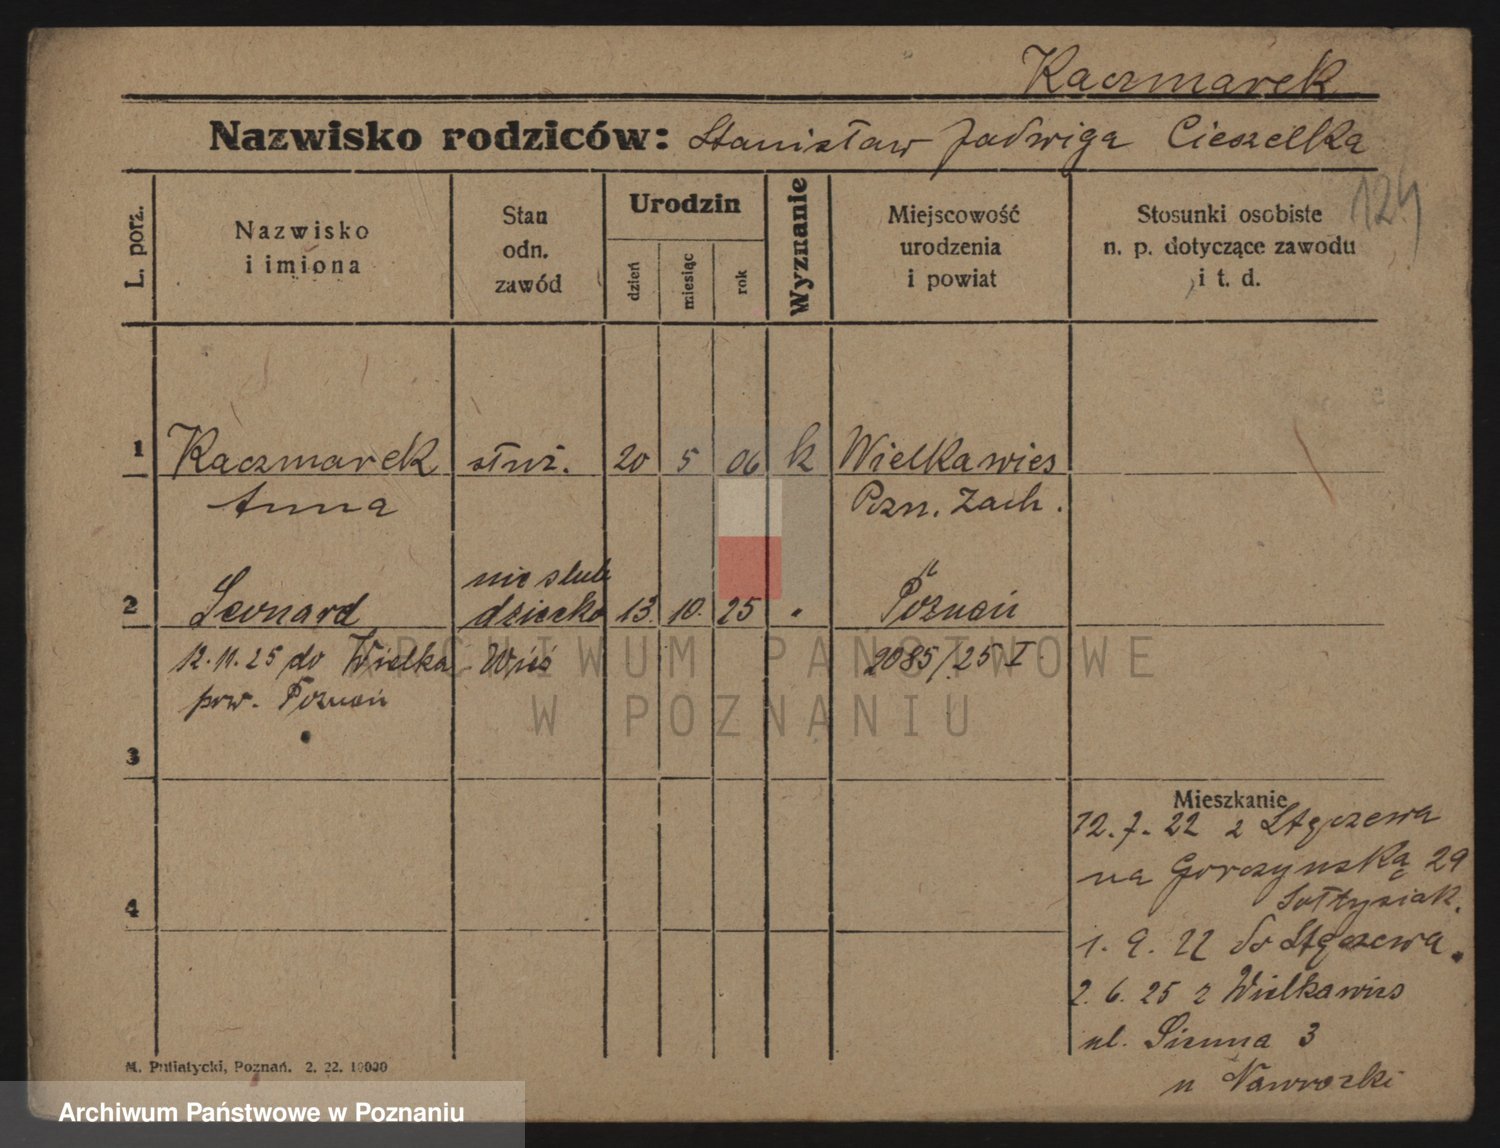 Kaczmarek
Nazwisko rodziców: Stanisław Jadwiga Cieszelka
124
L. porz.
Nazwisko
i imiona
Stan
odn.
zawód
Urodzin
dzień
miesiąc
rok
Wyznanie
Miejscowość
urodzenia
i powiat
Stosunki osobiste
n. p. dotyczące zawodu
i t. d.
1 Kaczmarek służ. 20 5 06 k Wielkawieś
Anna Pozn. Zach.
nieślub
2 Leonard dziecko 13. 10. 25 " Poznań
12.11.25 do Wielka Wieś 2085/25 I
pow. Poznań
3
4
Mieszkanie
12.7.22 z Stęszewa
na Gorczyńską 29
Sołtysiak.
1.9.22 do Stęszewa.
2.6.25 z Wielkawieś
ul. Sienna 3
u Nawrocki
M. Putiatycki, Poznań. 2. 22. 10000
ARCHIWUM PAŃSTWOWE
W POZNANIU
Archiwum Państwowe w Poznaniu